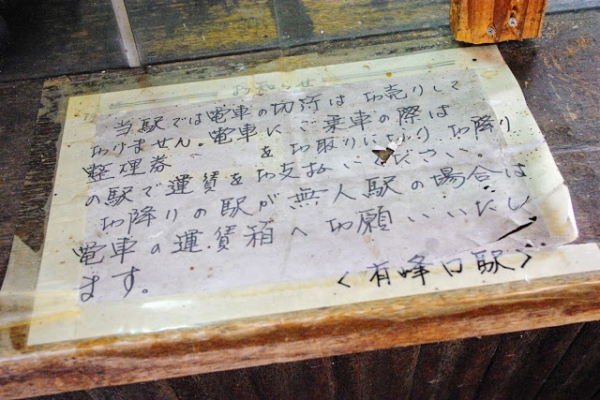 お知らせ
当駅では電車の切符はお売りして
おりません。電車にご乗車の際は
整理券 をお取りになり お降り
の駅で運賃をお支払いください。
お降りの駅が無人駅の場合は
電車の運賃箱へお願いいたし
ます。
<有峰口駅>